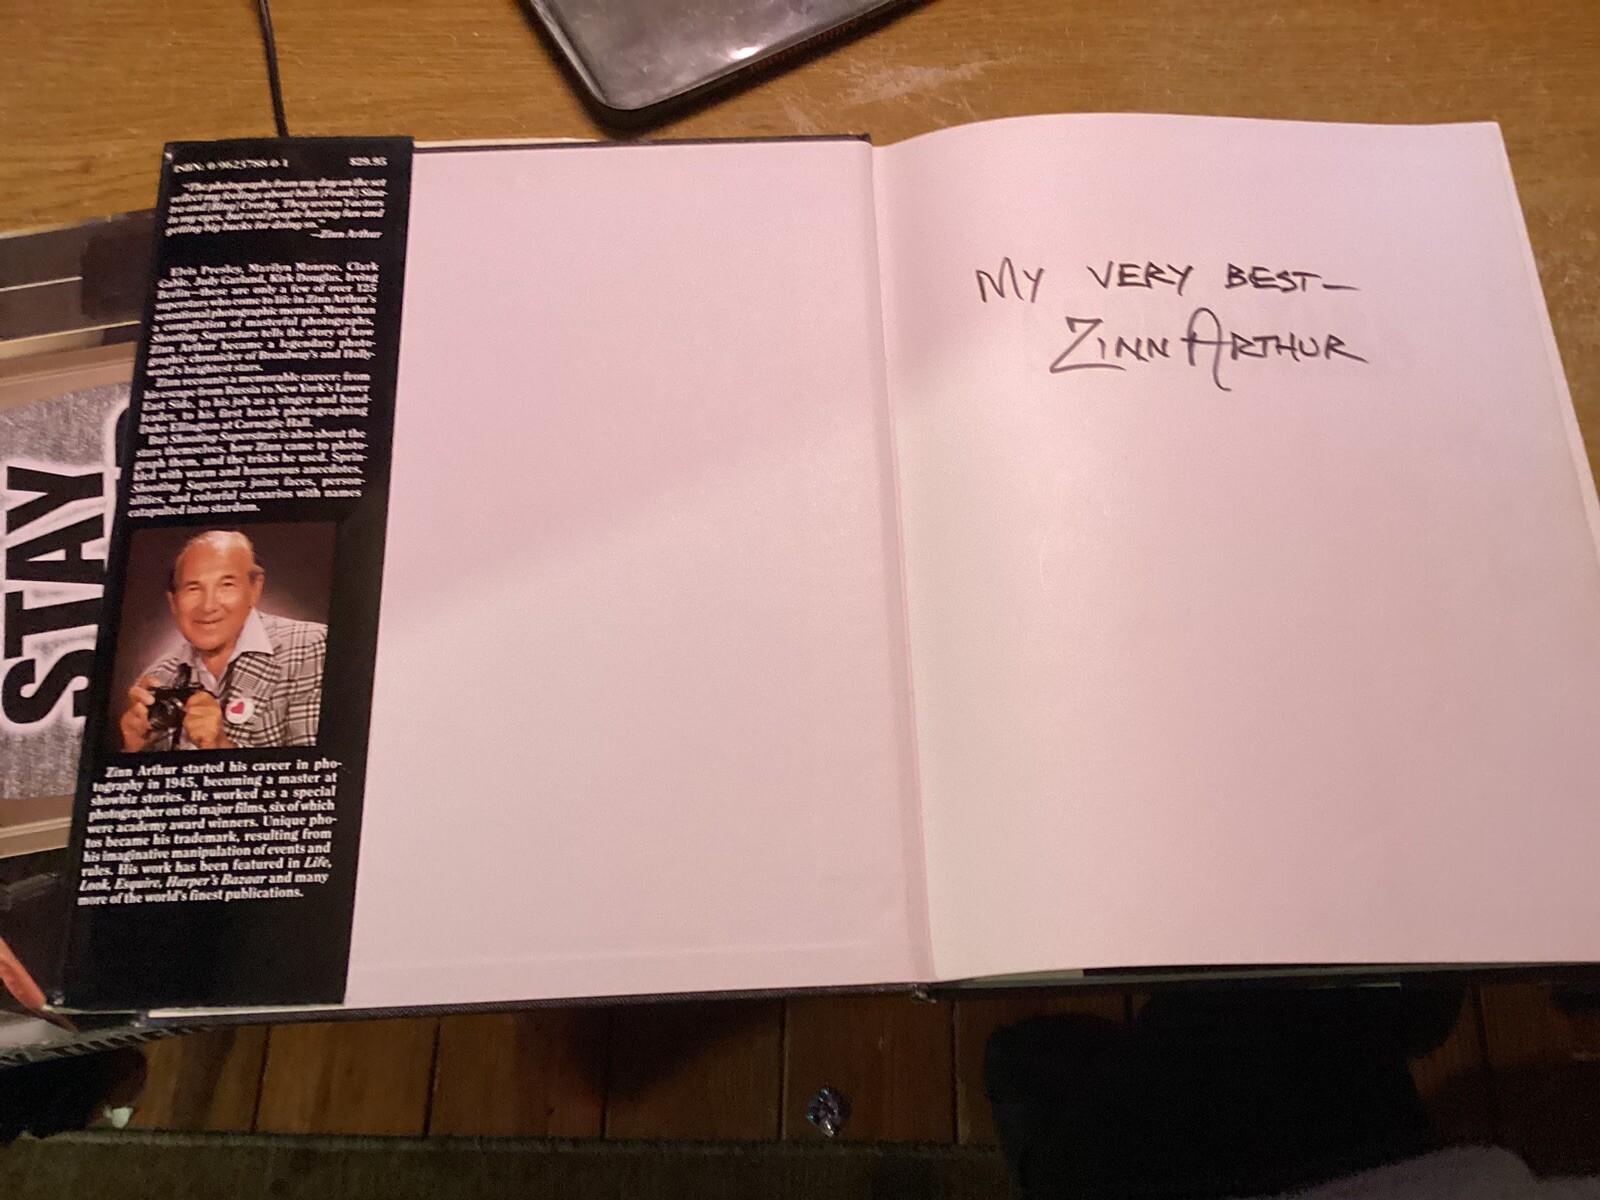 ISBN: 0-9623788-0-1 $29.95
"The photographs from my day on the set
reflect my feelings about both [Frank] Sina-
tra and [Bing] Crosby. They weren't actors
in my eyes, but real people having fun and
getting big bucks for doing so."
—Zinn Arthur
Elvis Presley, Marilyn Monroe, Clark
Gable, Judy Garland, Kirk Douglas, Irving
Berlin—these are only a few of over 125
superstars who come to life in Zinn Arthur's
sensational photographic memoir. More than
a compilation of masterful photographs,
Shooting Superstars tells the story of how
Zinn Arthur became a legendary photo-
graphic chronicler of Broadway's and Holly-
wood's brightest stars.
Zinn recounts a memorable career: from
his escape from Russia to New York's Lower
East Side, to his job as a singer and band-
leader, to his first break photographing
Duke Ellington at Carnegie Hall.
But Shooting Superstars is also about the
stars themselves, how Zinn came to photo-
graph them, and the tricks he used. Sprin-
kled with warm and humorous anecdotes,
Shooting Superstars joins faces, person-
alities, and colorful scenarios with names
catapulted into stardom.
Zinn Arthur started his career in pho-
tography in 1945, becoming a master at
showbiz stories. He worked as a special
photographer on 66 major films, six of which
were academy award winners. Unique pho-
tos became his trademark, resulting from
his imaginative manipulation of events and
rules. His work has been featured in Life,
Look, Esquire, Harper's Bazaar and many
more of the world's finest publications.
MY VERY BEST—
ZINN ARTHUR
STAY